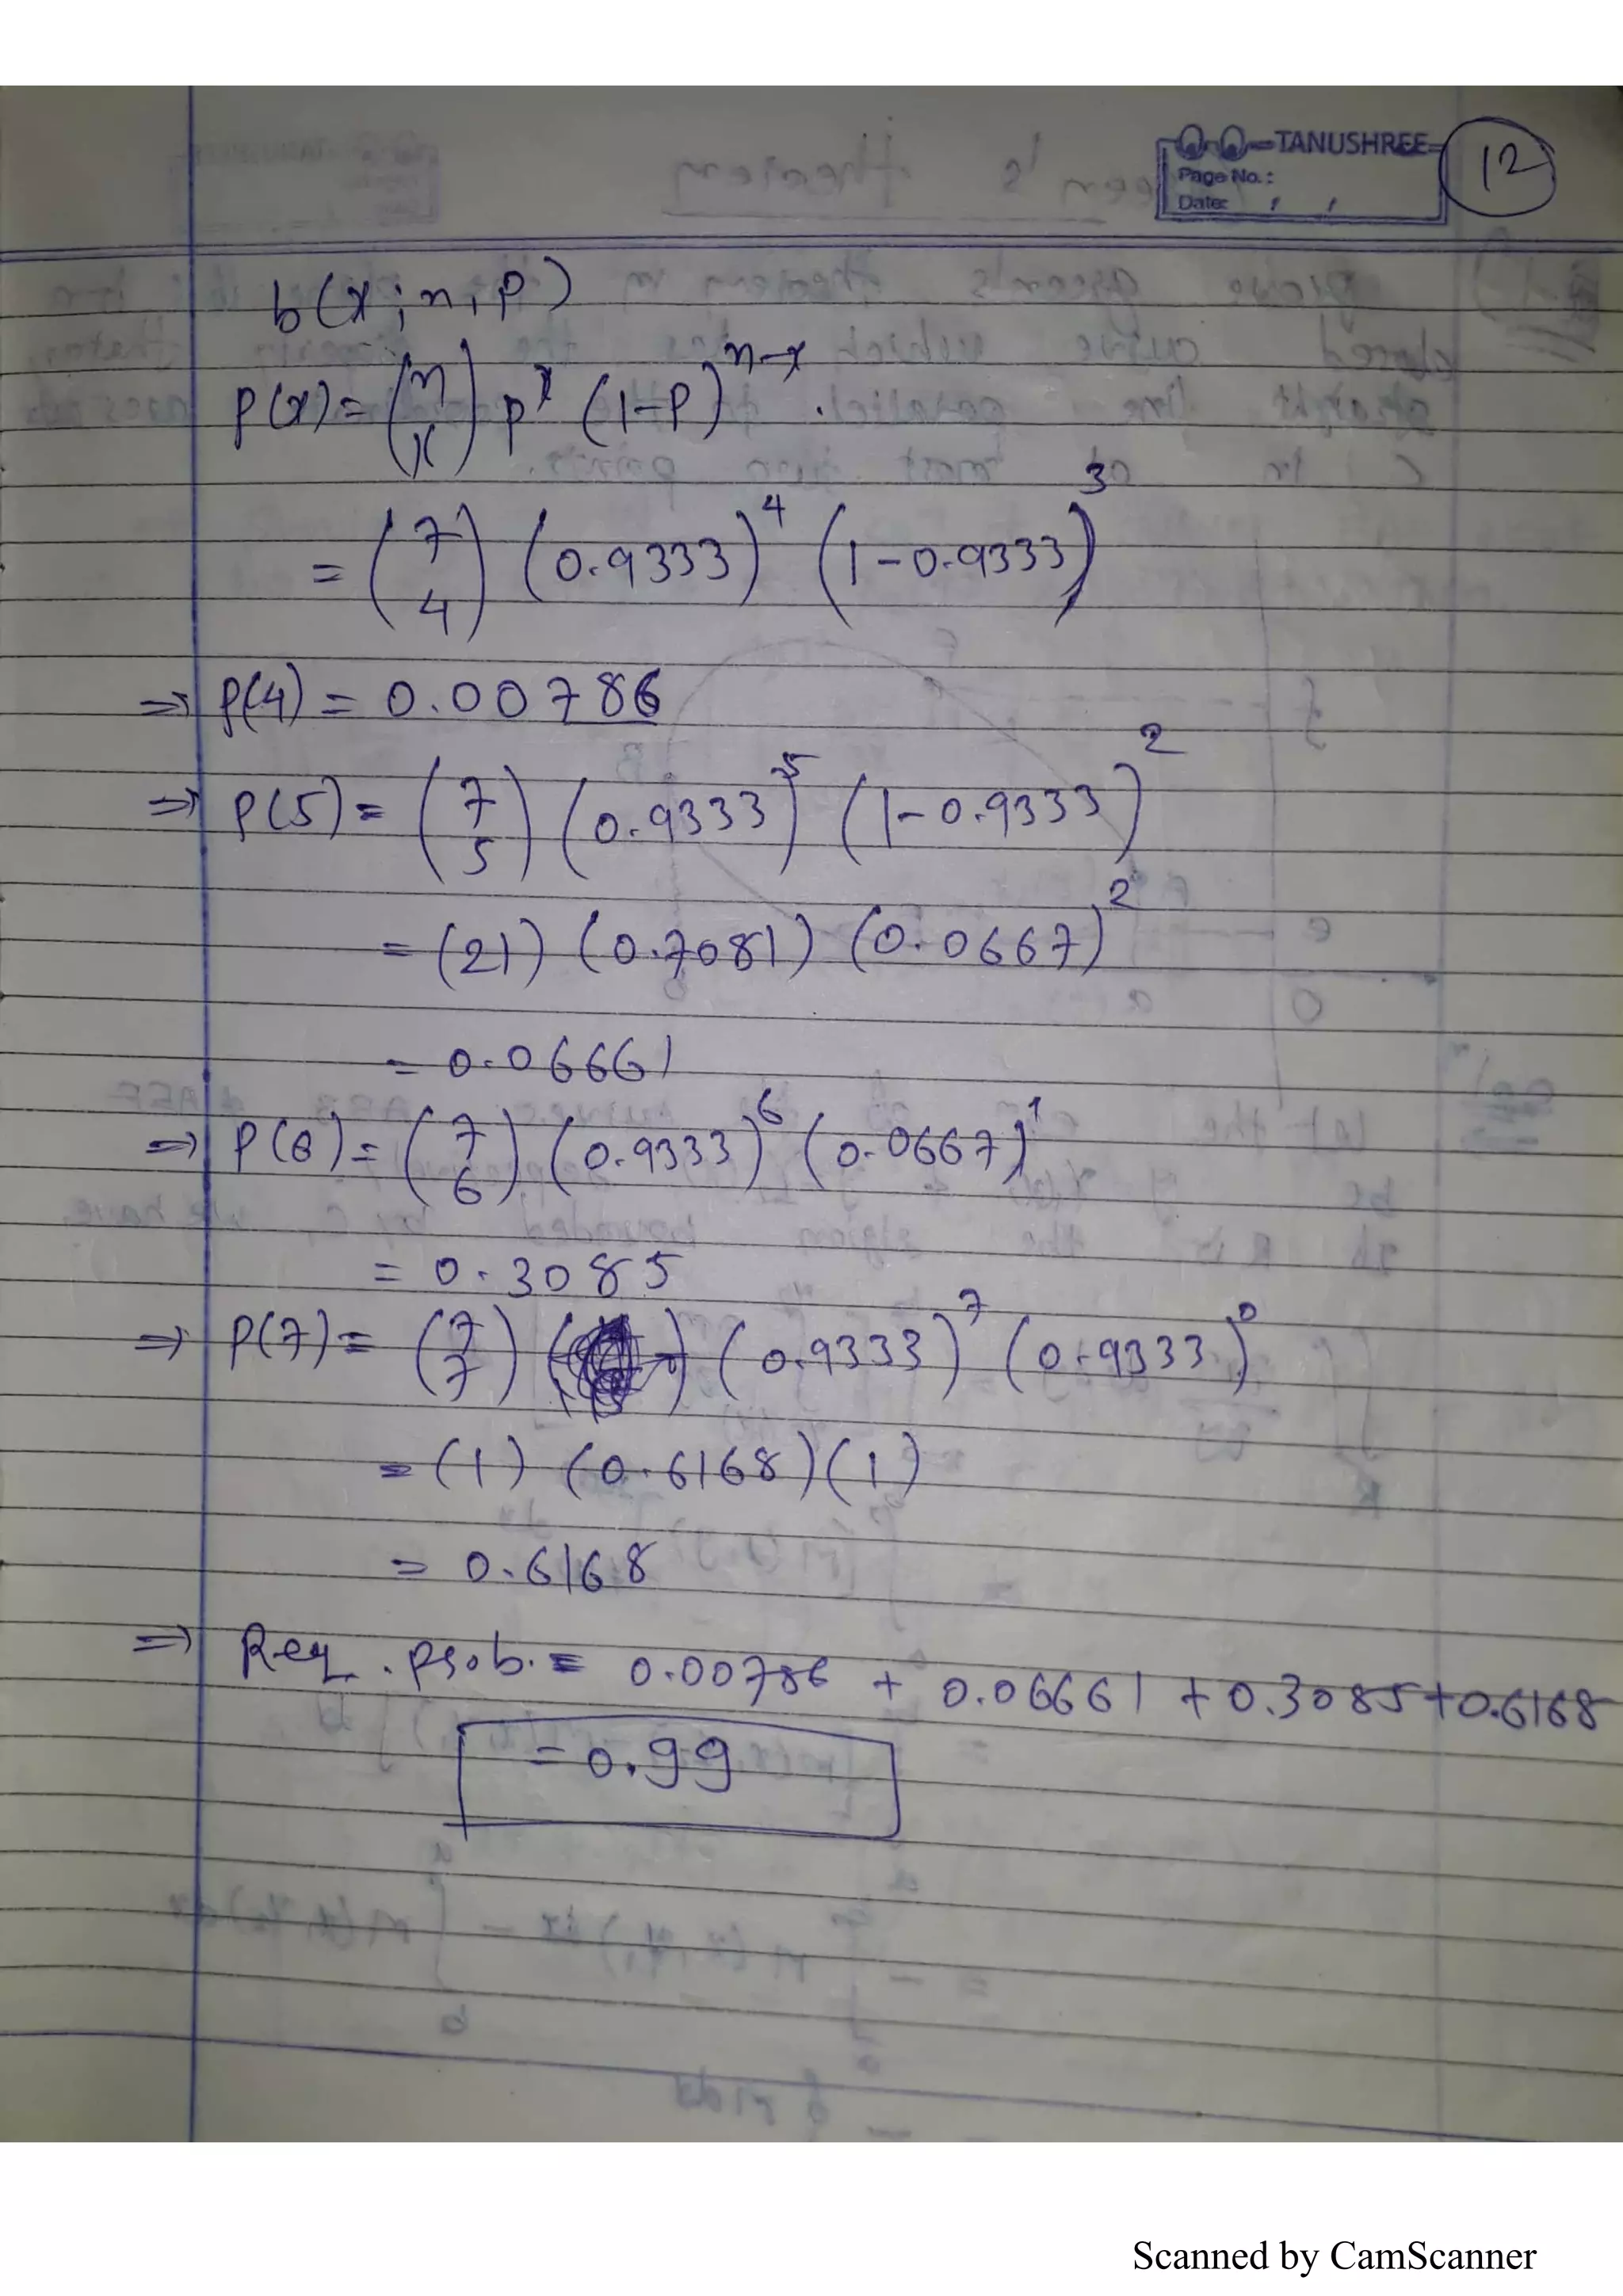 TANUSHREE
Page No.:
Date: / /
12
b(x; n, p)
p(x) = (n x) p^x (1-p)^n-x .
= (7 4) (0.9333)^4 (1-0.9333)^3
⇒ P(4) = 0.00786
⇒ P(5) = (7 5) (0.9333)^5 (1-0.9333)^2
= (21) (0.7081) (0.0667)^2
= 0.06661
⇒ P(6) = (7 6) (0.9333)^6 (0.0667)^1
= 0.3085
⇒ P(7) = (7 7) (0.9333)^7 (0.9333)^0
= (1) (0.6168) (1)
= 0.6168
⇒ Req. prob. = 0.00786 + 0.06661 + 0.3085 + 0.6168
= 0.99
Scanned by CamScanner